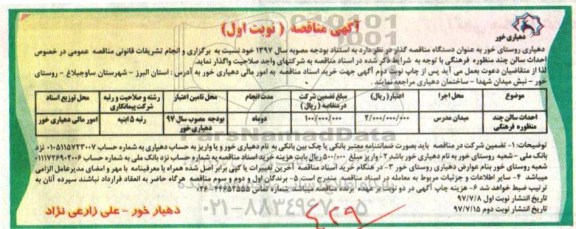 آگهی مناقصه ( نوبت اول )
دهیاری خور
دهیاری روستای خور به عنوان دستگاه مناقصه گذار در نظر دارد به استناد بودجه مصوبه سال ۱۳۹۷ خود نسبت به برگزاری و انجام تشریفات قانونی مناقصه عمومی در خصوص
احداث سالن چند منظوره فرهنگی با توجه به شرایط ذکر شده در اسناد مناقصه به شرکتهای واجد صلاحیت واگذار نماید.
لذا از متقاضیان دعوت بعمل می آید پس از چاپ نوبت دوم آگهی جهت خرید اسناد مناقصه به امور مالی دهیاری خور به آدرس : استان البرز - شهرستان ساوجبلاغ - روستای
خور - نبش میدان شهدا - ساختمان دهیاری مراجعه نمایند.
موضوع محل اجرا اعتبار( ریال) مبلغ تضمین شرکت در مناقصه ( ریال) مدت انجام محل تامین اعتبار رشته و صلاحیت و رتبه شرکت پیمانکاری محل توزیع اسناد
احداث سالن چند منظوره فرهنگی میدان مدرس ۲/۰۰۰/۰۰۰/۰۰۰ ۱۰۰/۰۰۰/۰۰۰ دو ماه بودجه مصوب سال ۹۷ دهیاری خور رتبه ۵ ابنیه امور مالی دهیاری خور
توضیحات : ۱- تضمین شرکت در مناقصه باید بصورت ضمانتنامه معتبر بانکی یا چک بین بانکی به نام دهیاری خور و یا واریز به حساب دهیاری به شماره حساب ۰۱۰۵۱۱۵۷۲۳۰۰۷ نزد
بانک ملی - شعبه روستای خور به نام دهیاری خور باشد ۲- واریز مبلغ ۵۰۰/۰۰۰ ریال بابت هزینه خرید اسناد مناقصه به شماره حساب نزد بانک ملی به شماره حساب
شعبه روستای خور بنام عوارض دهیاری روستای خور ۳- در هنگام خرید اسناد مناقصه آخرین تغییرات یا کپی برابر اصل شده همراه با معرفینامه با مهر و امضای مدیرعامل الزامی
میباشد ۴- سایر اطلاعات و جزئیات مربوط به معامله در اسناد مناقصه مندرج است ۵- برندگان اول و دوم و سوم مناقصه هرگاه حاضر به انعقاد قرارداد نباشند سپرده آنان به
ترتیب ضبط خواهد شد ۶- هزینه چاپ آگهی در دو نوبت بر عهده برنده مناقصه میباشد.
تاریخ انتشار نوبت اول ۹۷/۷/۸
تاریخ انتشار نوبت دوم ۹۷/۷/۱۵
دهیار خور - علی زارعی نژاد
۰۲۱-۸۸۳۴۹۶۷۰-۵
۴۲۹